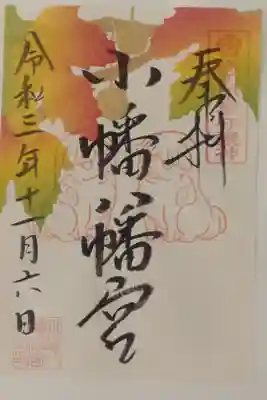 奉拝
小幡八幡宮
令和三年十一月六日